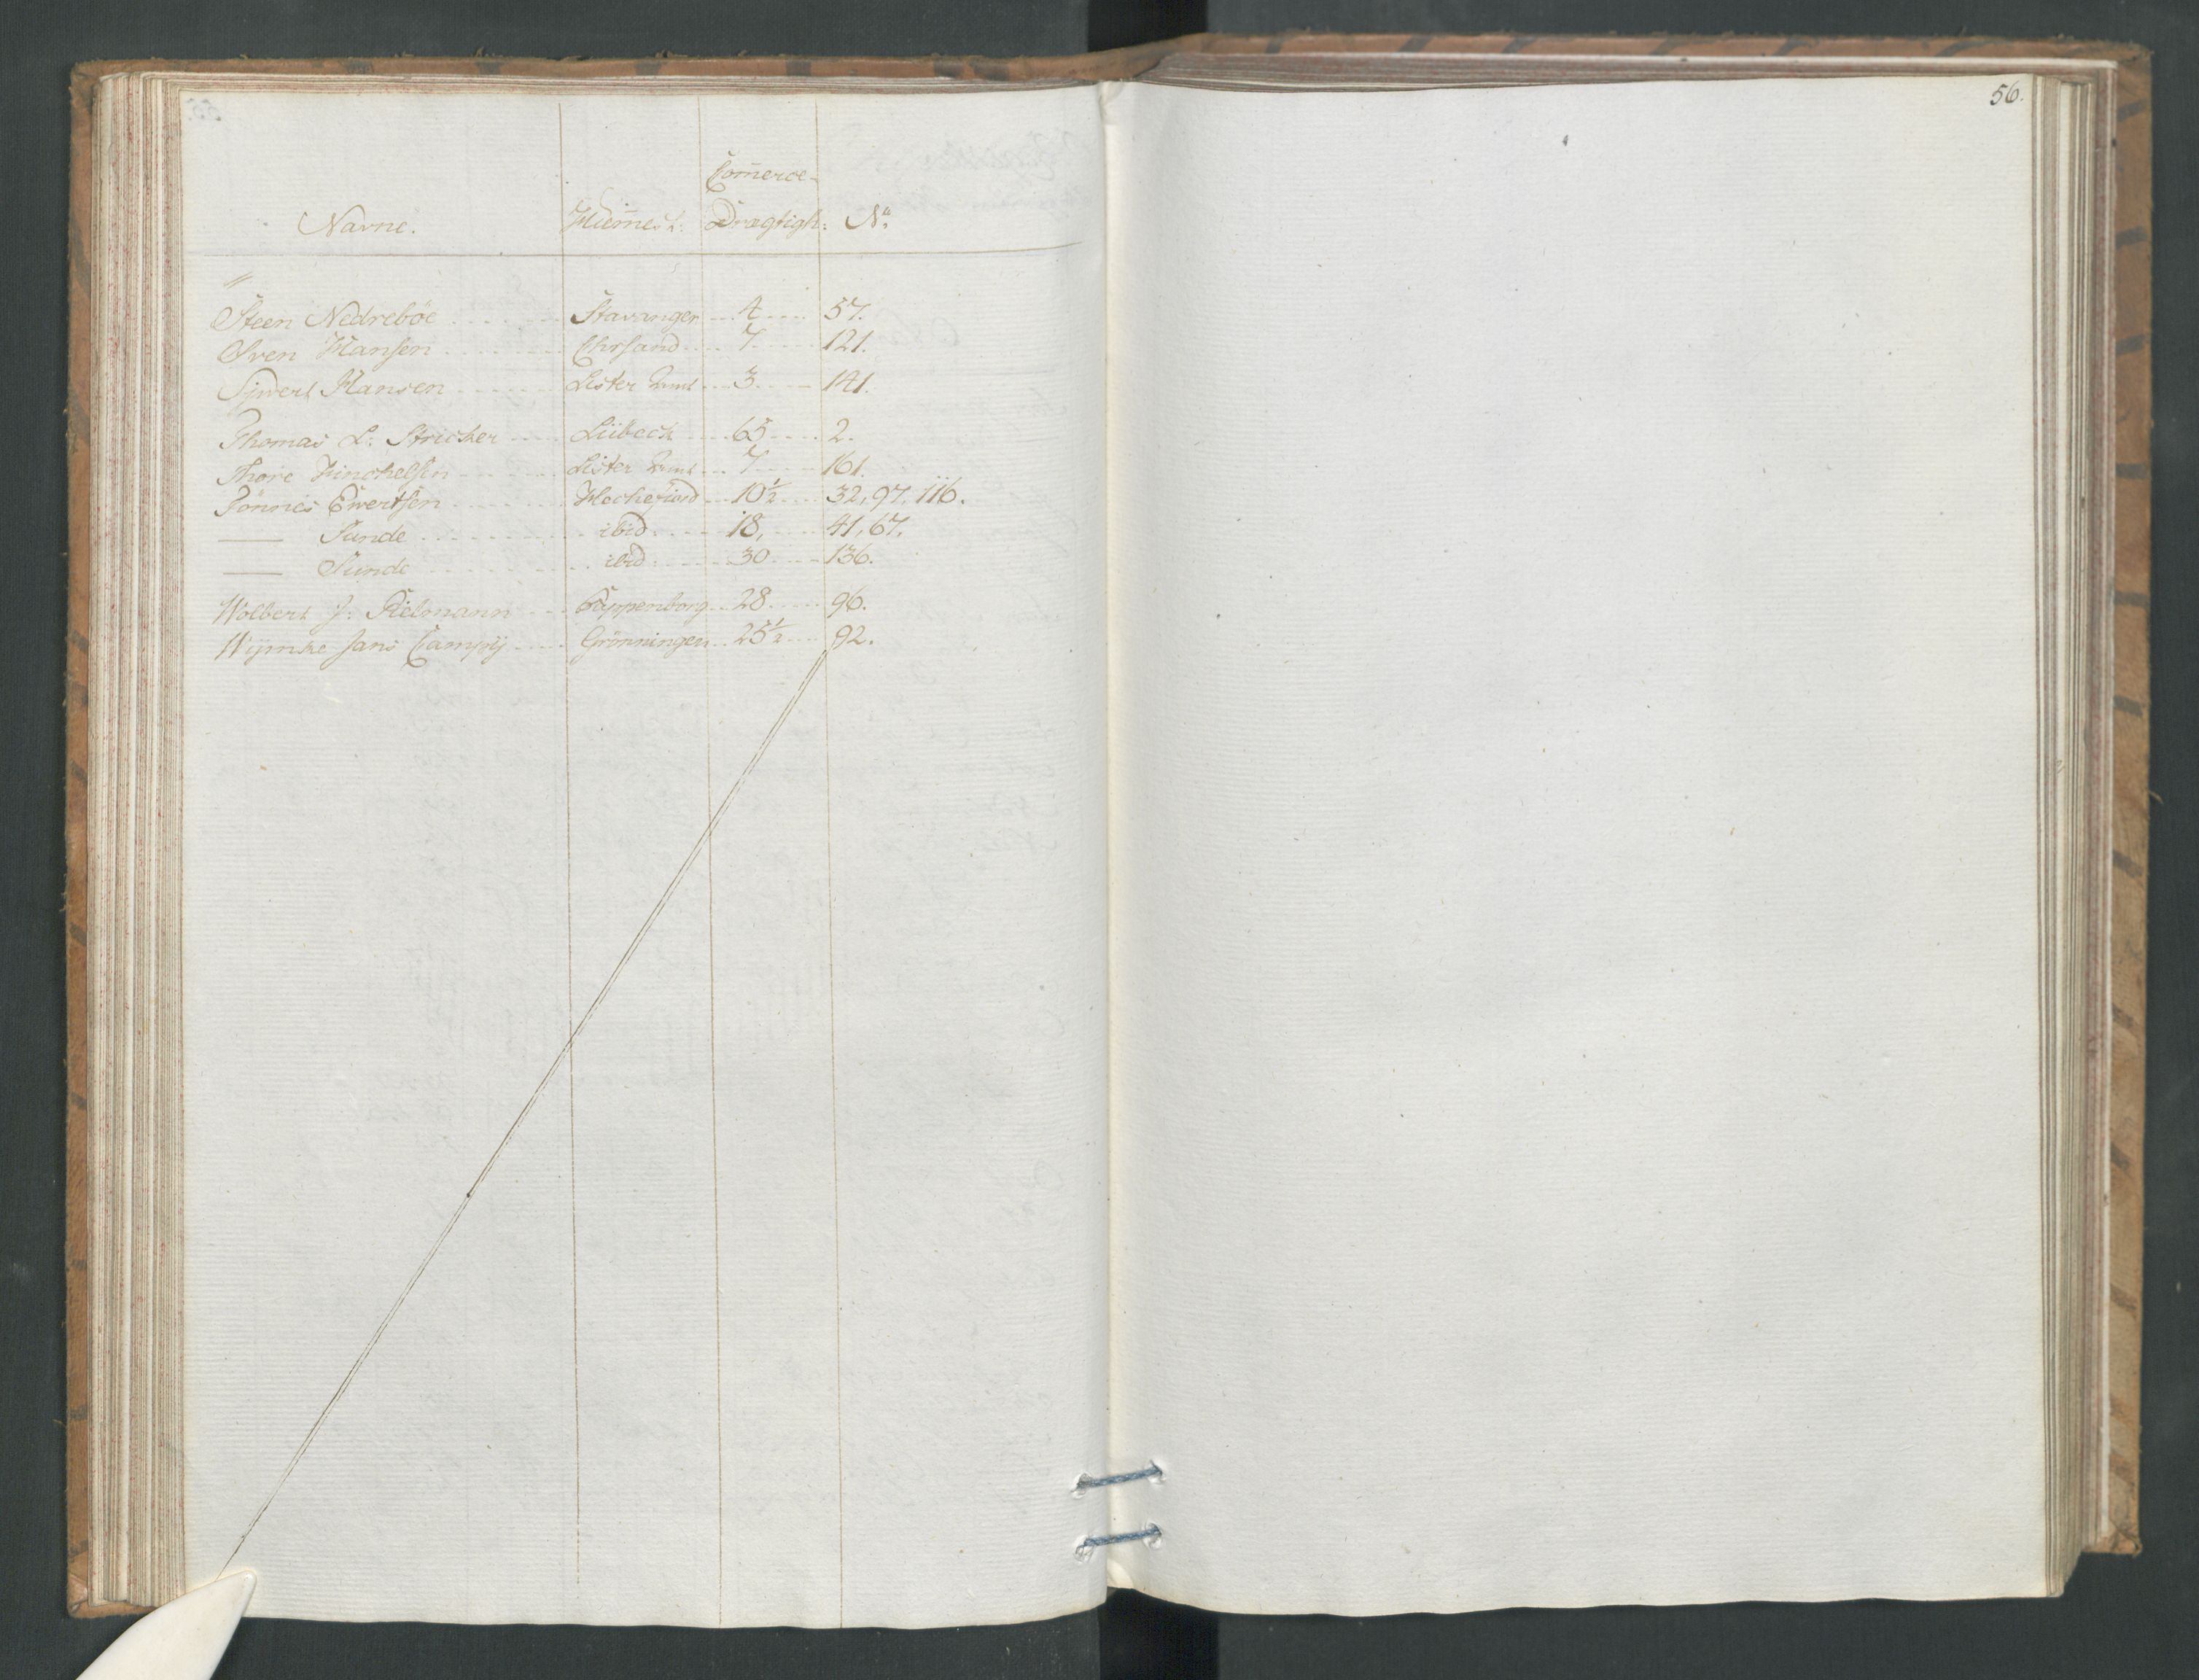 56.
Com̄erce-
Navne. Hiem̄est: Drægtigh: No.
Steen Nedrebøe Stavanger 4 57.
Sven Hansen Chrsand 7 121.
Sjwert Hansen Lister Amt 3 141.
Thomas L: Stricker Lübeck 65 2.
Thore Hinchelsen Lister Amt 7 161.
Tönnes Ewertsen Heckefiord 10½ 32, 97, 116.
— Sande ibid 18, 41, 67.
— Sunde ibid 30 136.
Wolbert J: Kielmann Pappenborg 28 96.
Wijmke Jans Campij Grönningen 25½ 92.